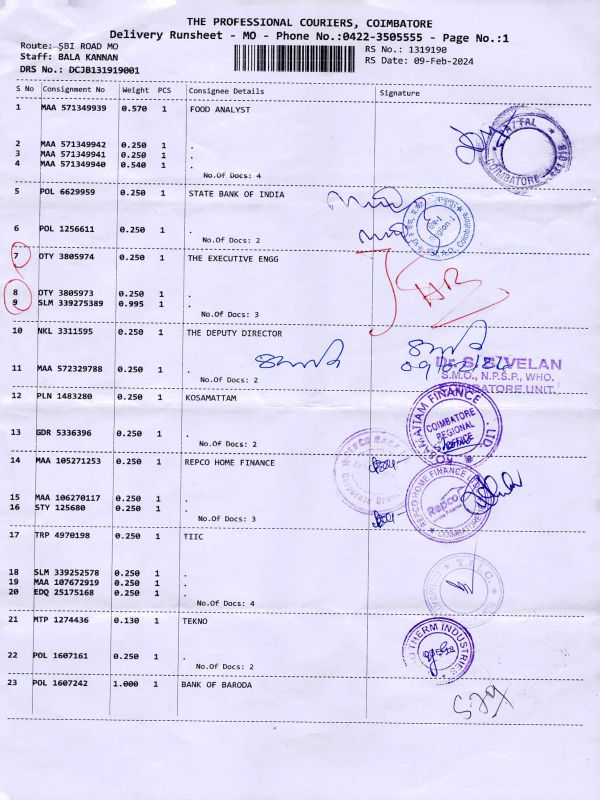 THE PROFESSIONAL COURIERS, COIMBATORE
Delivery Runsheet - MO - Phone No.:0422-3505555 - Page No.:1
Route: SBI ROAD MO
RS No.: 1319190
Staff: BALA KANNAN
RS Date: 09-Feb-2024
DRS No.: DCJB131919001
S No Consignment No Weight PCS Consignee Details Signature
1 MAA 571349939 0.570 1 FOOD ANALYST
2 MAA 571349942 0.250 1 .
3 MAA 571349941 0.250 1 .
4 MAA 571349940 0.540 1 .
No.Of Docs: 4
COIMBATORE
5 POL 6629959 0.250 1 STATE BANK OF INDIA
6 POL 1256611 0.250 1 .
No.Of Docs: 2
7 OTY 3805974 0.250 1 THE EXECUTIVE ENGG
8 OTY 3805973 0.250 1 .
9 SLM 339275389 0.995 1 .
No.Of Docs: 3
10 NKL 3311595 0.250 1 THE DEPUTY DIRECTOR
11 MAA 572329788 0.250 1 .
No.Of Docs: 2
09/02/24
VELAN
S.M.O., N.P.S.P., WHO.
COIMBATORE UNIT.
12 PLN 1483280 0.250 1 KOSAMATTAM
13 GDR 5336396 0.250 1 .
No.Of Docs: 2
KOSAMATTAM FINANCE LTD
COIMBATORE
REGIONAL
OFFICE
14 MAA 105271253 0.250 1 REPCO HOME FINANCE
15 MAA 106270117 0.250 1 .
16 STY 125680 0.250 1 .
No.Of Docs: 3
REPCO HOME FINANCE
Repco
COIMBATORE
17 TRP 4970198 0.250 1 TIIC
18 SLM 339252578 0.250 1 .
19 MAA 107672919 0.250 1 .
20 EDQ 25175168 0.250 1 .
No.Of Docs: 4
21 MTP 1274436 0.130 1 TEKNO
22 POL 1607161 0.250 1 .
No.Of Docs: 2
THERM INDUSTRIES
23 POL 1607242 1.000 1 BANK OF BARODA